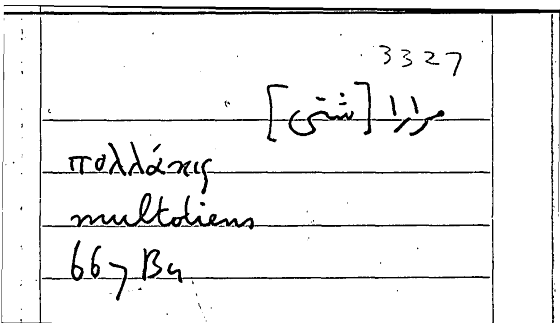 3327
مرارا [شتى]
πολλάκις
multotiens
667 Ba